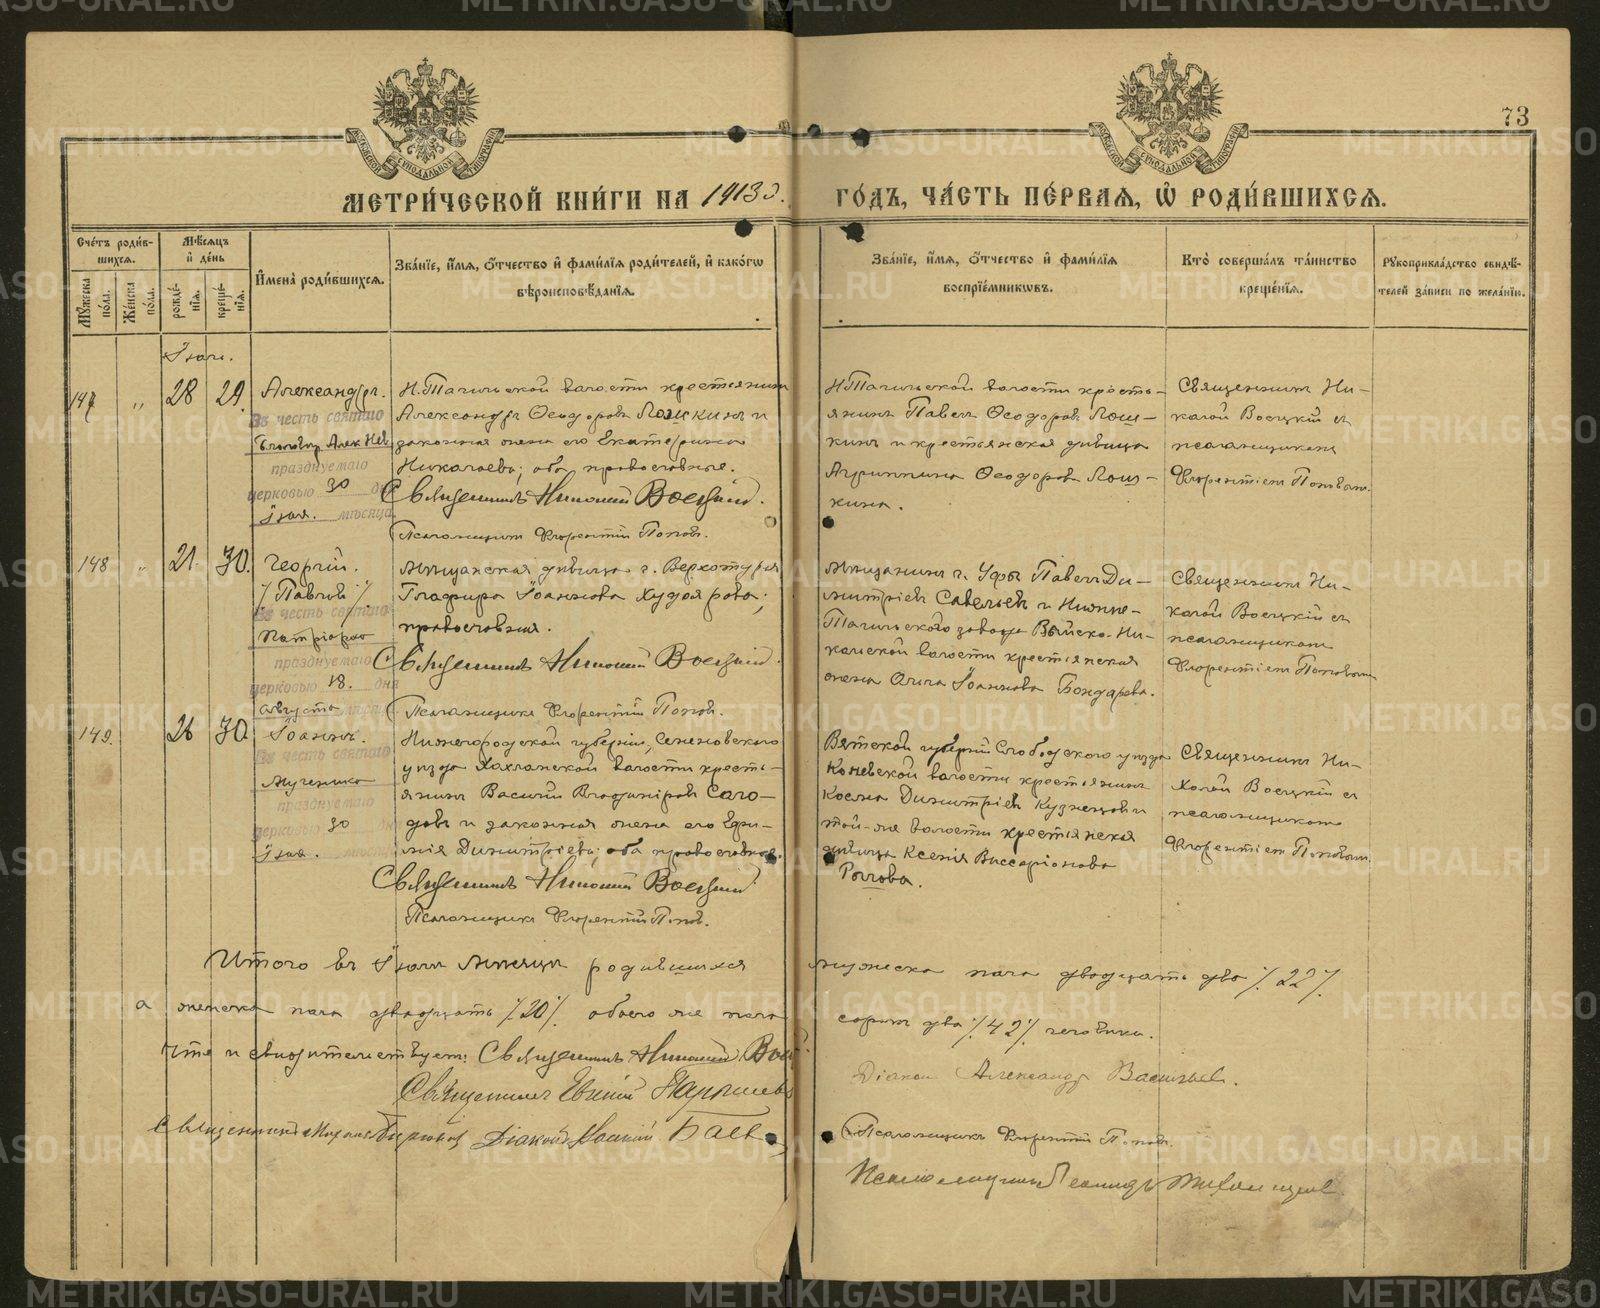 73
МОСКОВСКОЙ СѴНОДАЛЬНОЙ ТИПОГРАФІИ
МОСКОВСКОЙ СѴНОДАЛЬНОЙ ТИПОГРАФІИ
МЕТРИ́ЧЕСКОЙ КНИ́ГИ НА 1913 Г҃ОДЪ, ЧА́СТЬ ПЕ́РВАЯ, Ѡ҆ РОДИ́ВШИХСЯ.
Сче́тъ роди́в-
шихся.
Мѣ́сяцъ
и҆ де́нь
Мꙋ́жеска по́ла.
Же́нска по́ла.
рожде́-нія.
креще́-нія.
И҆мена̀ роди́вшихся.
Зва́нїе, и҆́мя, о҆́тчество и҆ фами́лїя роди́телей, и҆ како́гѡ
вѣроисповѣ́данїя.
Зва́нїе, и҆́мя, о҆́тчество и҆ фами́лїя
воспрїе́мникѡвъ.
Кто̀ соверша́лъ та́инство
креще́нїя.
Рꙋкоприкла́дство свидѣ́-
телей за́писи по жела́нїю.
Іюль.
147 „ 28 29
Александръ.
Въ честь святаго
Благовѣр. Алек. Нев.
празднуемаго
церковью 30 дня
Іюля. мѣсяца.
Н.Тагильской волости крестьянинъ
Александръ Ѳеодоровъ Лошкинъ и
законная жена его Екатерина
Николаева; оба православные.
Священникъ Николай Воецкій.
Псаломщикъ Флорентій Поповъ.
Н.Тагильской волости кресть-
янинъ Павелъ Ѳеодоровъ Лош-
кинъ и крестьянская дѣвица
Агриппина Ѳеодорова Лош-
кина.
Священникъ Ни-
колай Воецкій съ
псаломщикомъ
Флорентіемъ Поповымъ.
148 „ 21. 30.
Георгій.
/. Павловъ /.
Въ честь святаго
Патріарха
празднуемаго
церковью 18. дня
Августа мѣсяца
Мѣщанская дѣвица г. Верхотурья
Глафира Іоаннова Худоярова;
православная.
Священникъ Николай Воецкій.
Псаломщикъ Флорентій Поповъ.
Мѣщанинъ г. Уфы Павелъ Ди-
митріевъ Савельевъ и Нижне-
Тагильскаго завода Выйско-Ни-
колаевской волости крестьянская
жена Ольга Іоаннова Бондарева.
Священникъ Ни-
колай Воецкій съ
псаломщикомъ
Флорентіемъ Поповымъ
149. 26 30
Іоаннъ.
Въ честь святаго
Мученика
празднуемаго
церковью 30 дня
Іюля. мѣсяца
Нижегородской губерніи, Семеновскаго
уѣзда Хахланской волости кресть-
янинъ Василій Владиміровъ Соло-
довъ и законная жена его Ефи-
мія Димитріева; оба православные.
Священникъ Николай Воецкій
Псаломщикъ Флорентій Поповъ.
Вятской губерніи Слободскаго уѣзда
Косма Димитріевъ Кузнецовъ и
той-же волости крестьянская
дѣвица Ксенія Виссаріонова
Рылова.
Священникъ Ни-
колай Воецкій съ
псаломщикомъ
Флорентіемъ Поповымъ.
Итого въ Іюлѣ мѣсяцѣ родившихся мужеска пола двадцать два /. 22 /.
а женска пола двадцать /. 20 /. обоего же пола сорокъ два /. 42 /. человѣка.
Что и свидѣтельствуетъ: Священникъ Николай Воецкій
Діаконъ Александръ Васильевъ.
Псаломщикъ Флорентій Поповъ.
METRIKI.GASO-URAL.RU